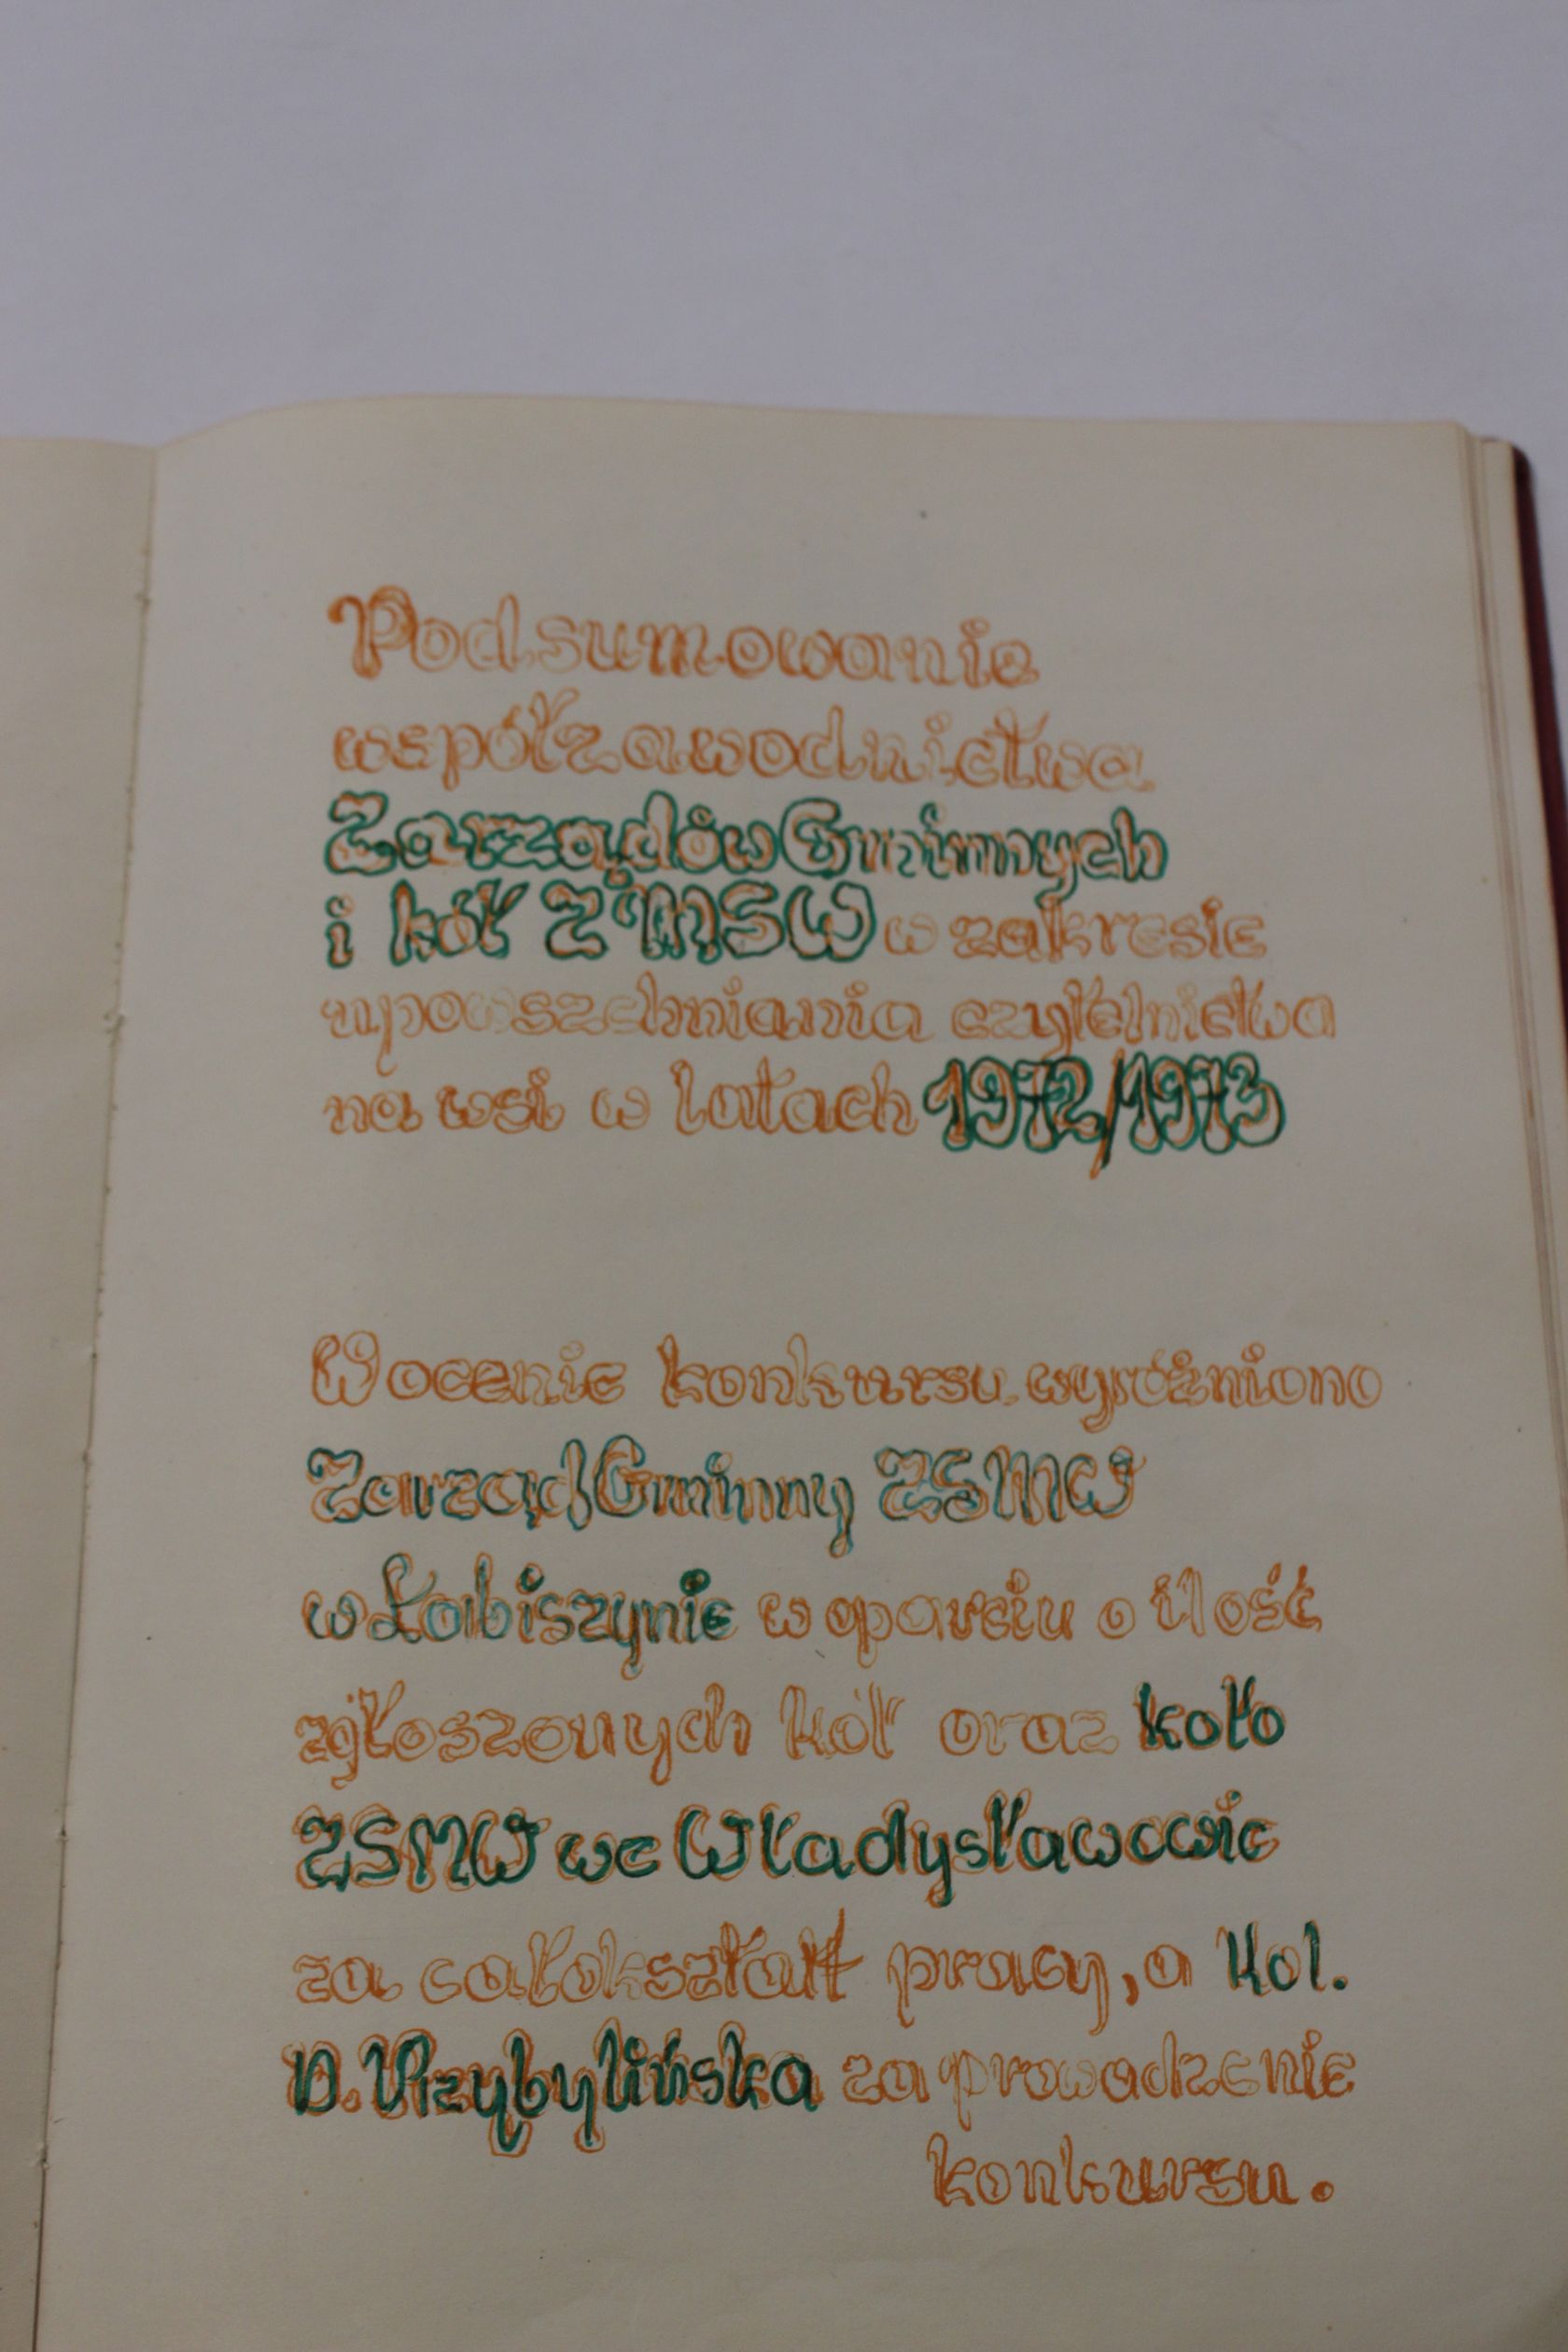 Podsumowanie
współzawodnictwa
Zarządów Gminnych
i kół ZMSW w zakresie
upowszechniania czytelnictwa
na wsi w latach 1972/1973
W ocenie konkursu wyróżniono
Zarząd Gminny ZSMW
w Łabiszynie w oparciu o ilość
zgłoszonych kół oraz koło
ZSMW we Władysławowie
za całokształt pracy, a kol.
D. Przybylińska za prowadzenie
konkursu.